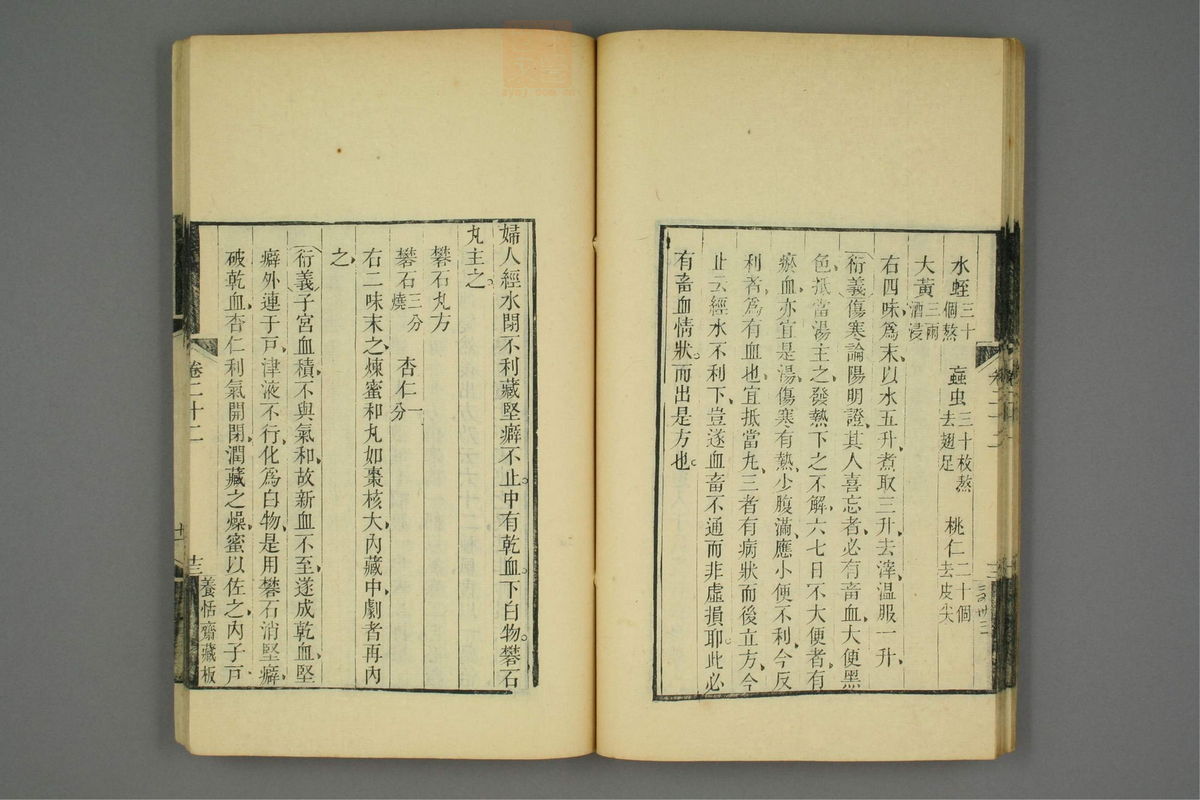 水蛭三十個熬　蝱虫三十枚熬去翅足　桃仁二十個去皮尖
大黃三兩酒浸
右四味爲末以水五升煮取三升去滓溫服一升
衍義傷寒論陽明證其人喜忘者必有畜血大便黑
色抵當湯主之發熱下之不解六七日不大便者有
瘀血亦宜是湯傷寒有熱少腹滿應小便不利今反
利者爲有血也宜抵當丸三者有病狀而後立方今
止云經水不利下豈遂血畜不通而非虛損耶此必
有畜血情狀而出是方也
婦人經水閉不利藏堅癖不止中有乾血下白物礬石
丸主之
礬石丸方
礬石三分燒　杏仁一分
右二味末之煉蜜和丸如棗核大內藏中劇者再內
之
衍義子宮血積不與氣和故新血不至遂成乾血堅
癖外連于戶津液不行化爲白物是用礬石消堅癖
破乾血杏仁利氣開閉潤藏之燥蜜以佐之內子戶
卷二十二
十三
養恬齋藏板